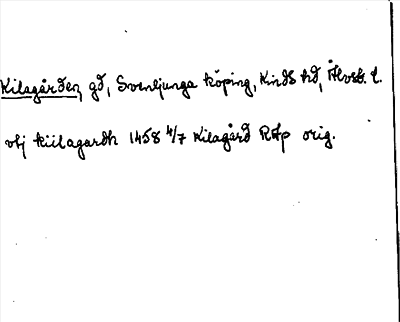 Kilagården, gd, Svenljunga köping, Kinds hd, Älvsb. l.
vbj kiilagardh 1458 4/7 Kilagård RAp orig.